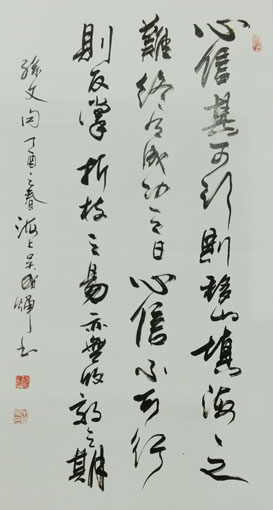 心信其可行则移山填海之
难终有成功之日心信不可行
则反掌折枝之易亦无收效之期
孙文句丁酉之春海上吴
书